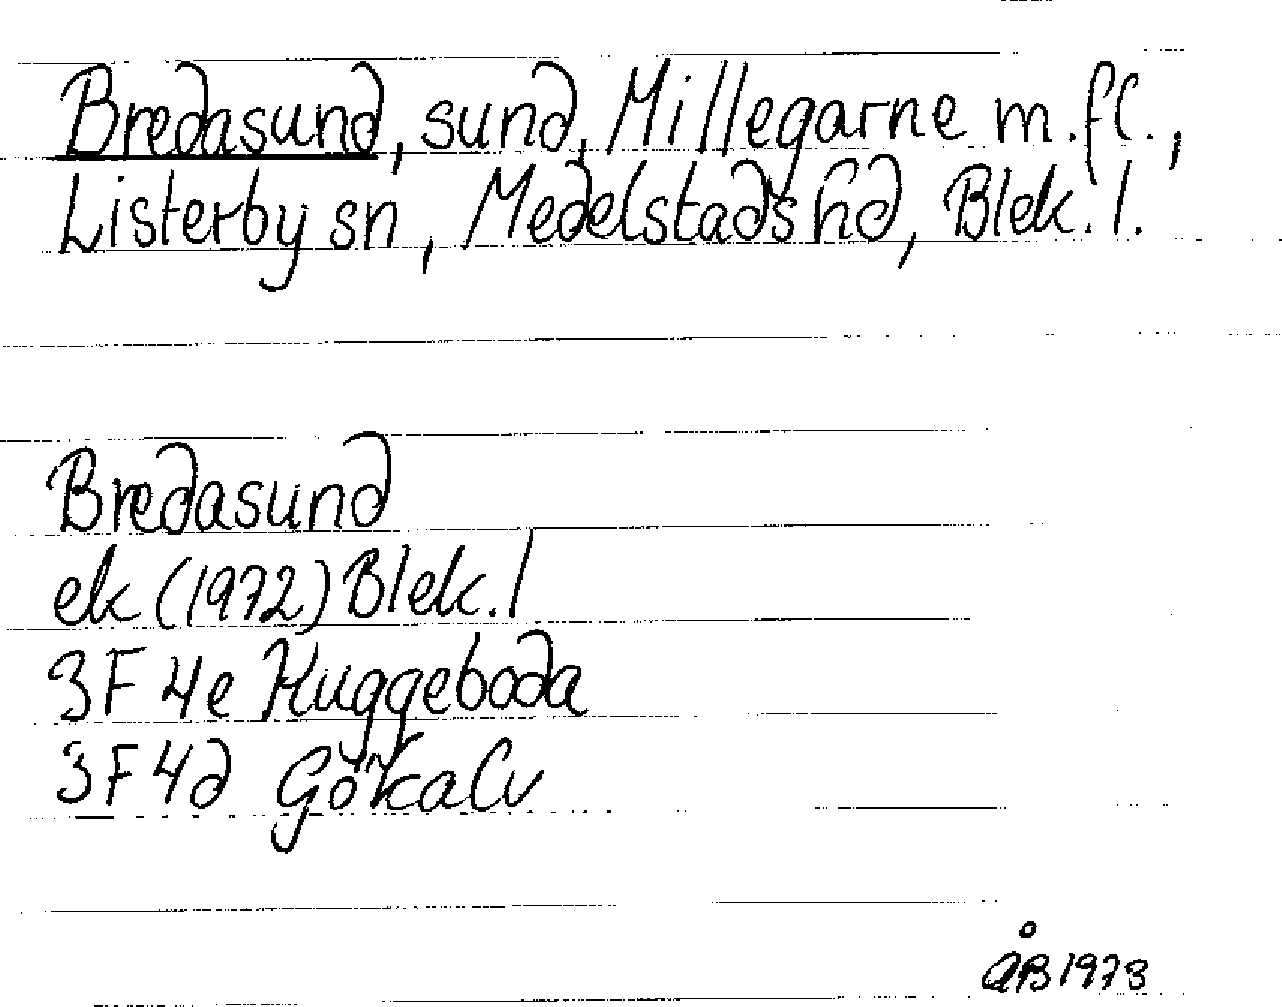 Bredasund, sund, Millegarne m.fl.,
Listerby sn, Medelstads hd, Blek. l.
Bredasund
ek (1972) Blek. l
3F 4e Kuggeboda
3F 4d Gökalv
ÅB 1978